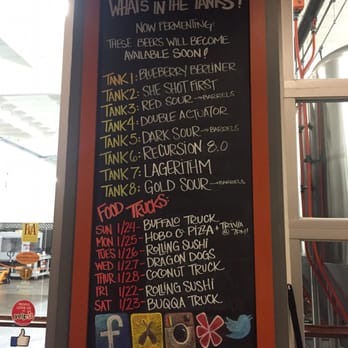 WHATS IN THE TANKS?
NOW FERMENTING
THESE BEERS WILL BECOME
AVAILABLE SOON!
TANK 1: BLUEBERRY BERLINER
TANK 2: SHE SHOT FIRST
TANK 3: RED SOUR → BARRELS
TANK 4: DOUBLE ACTUATOR
TANK 5: DARK SOUR → BARRELS
TANK 6: RECURSION 8.0
TANK 7: LAGERITHM
TANK 8: GOLD SOUR → BARRELS
FOOD TRUCKS:
SUN 1/24- BUFFALO TRUCK
MON 1/25- HOBO G PIZZA + TRIVIA @ 7PM!
TUES 1/26- ROLLING SUSHI
WED 1/27- DRAGON DOGS
THUR 1/28- COCONUT TRUCK
FRI 1/22- ROLLING SUSHI
SAT 1/23- BUQQA TRUCK
f